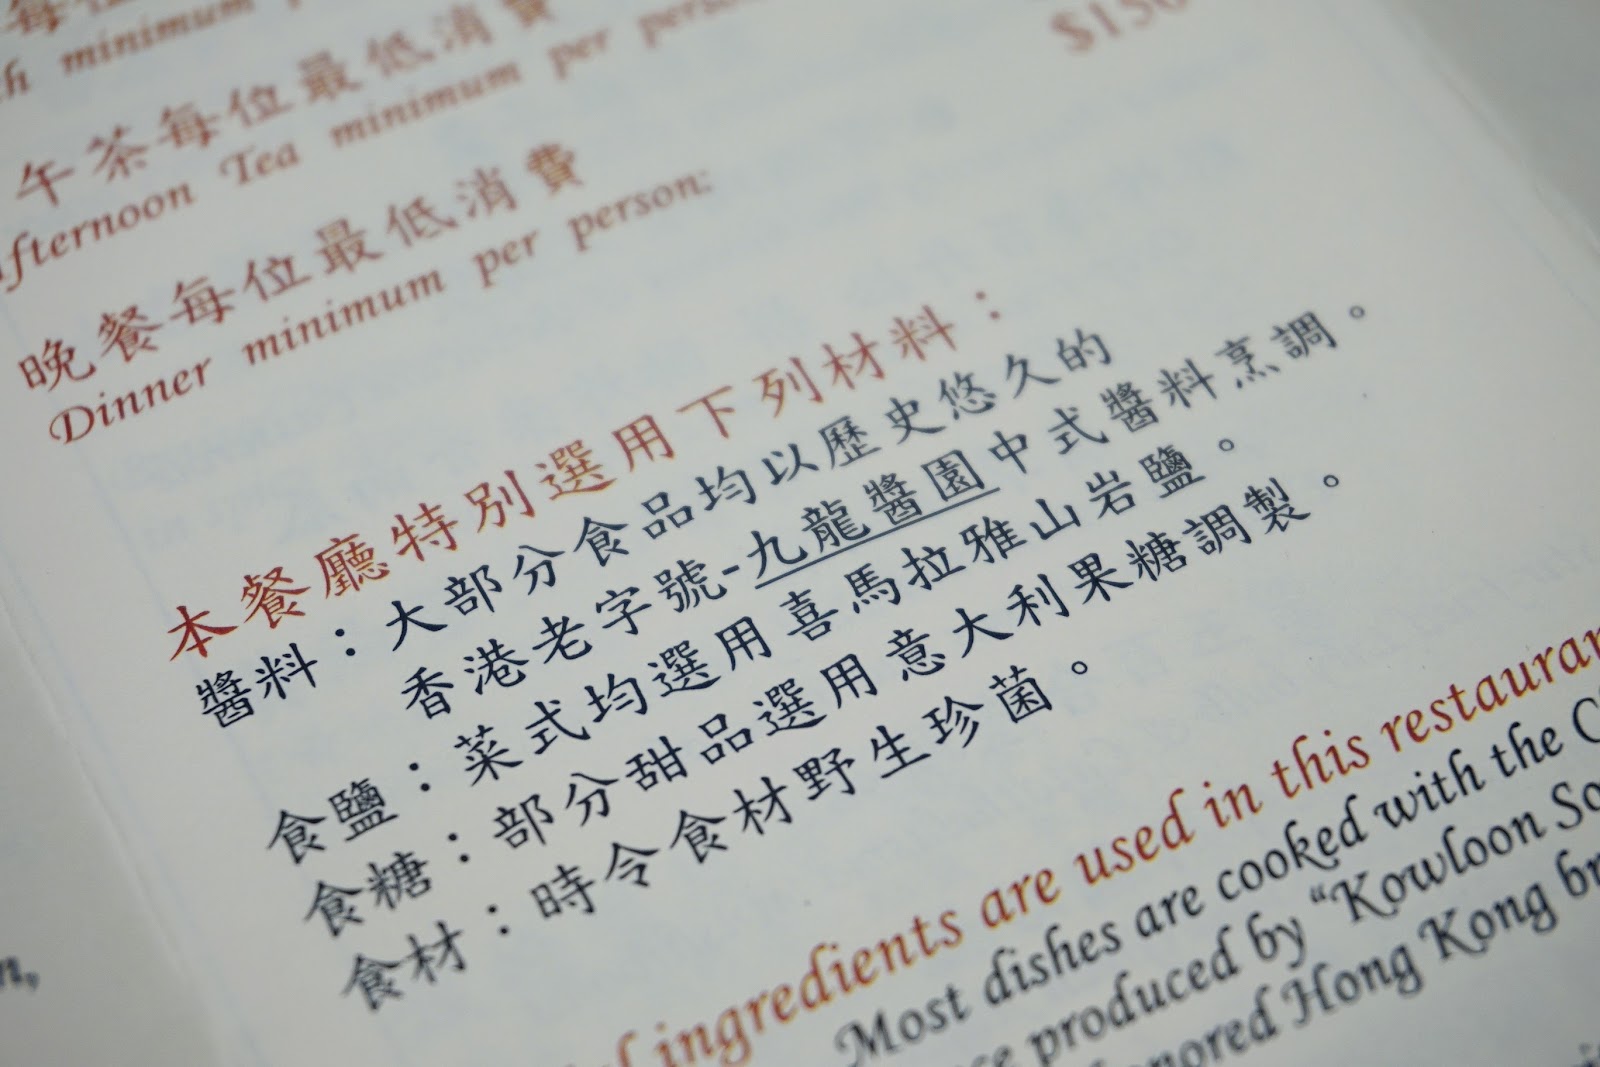 minimum
$150
午茶每位最低消費
Afternoon Tea minimum per person
晚餐每位最低消費
Dinner minimum per person:
本餐廳特別選用下列材料：
醬料：大部分食品均以歷史悠久的
香港老字號-九龍醬園中式醬料烹調。
食鹽：菜式均選用喜馬拉雅山岩鹽。
食糖：部分甜品選用意大利果糖調製。
食材：時令食材野生珍菌。
ingredients are used in this restaurant
Most dishes are cooked with the
produced by "Kowloon
Hong Kong